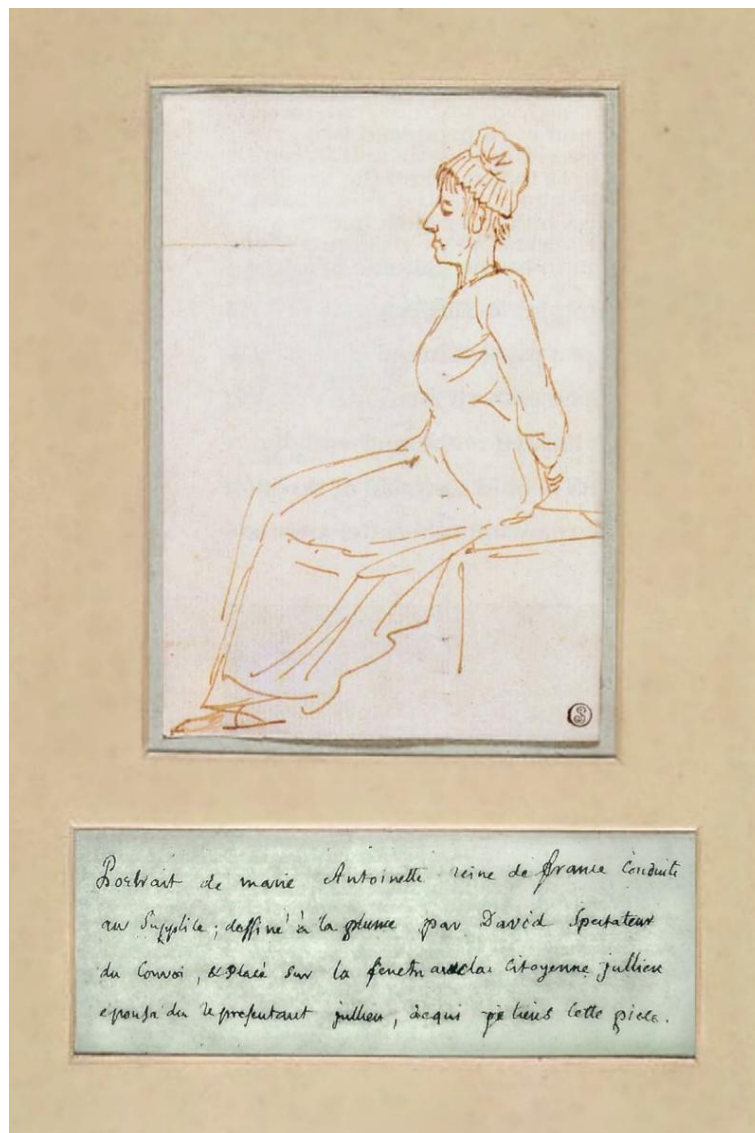 Portrait de marie Antoinette reine de france conduite
au Supplice; dessiné à la plume par David Spectateur
du Convoi, & placé sur la fenetre la citoyenne jullien
epouse du representant jullien, à qui je tiens cette piece.